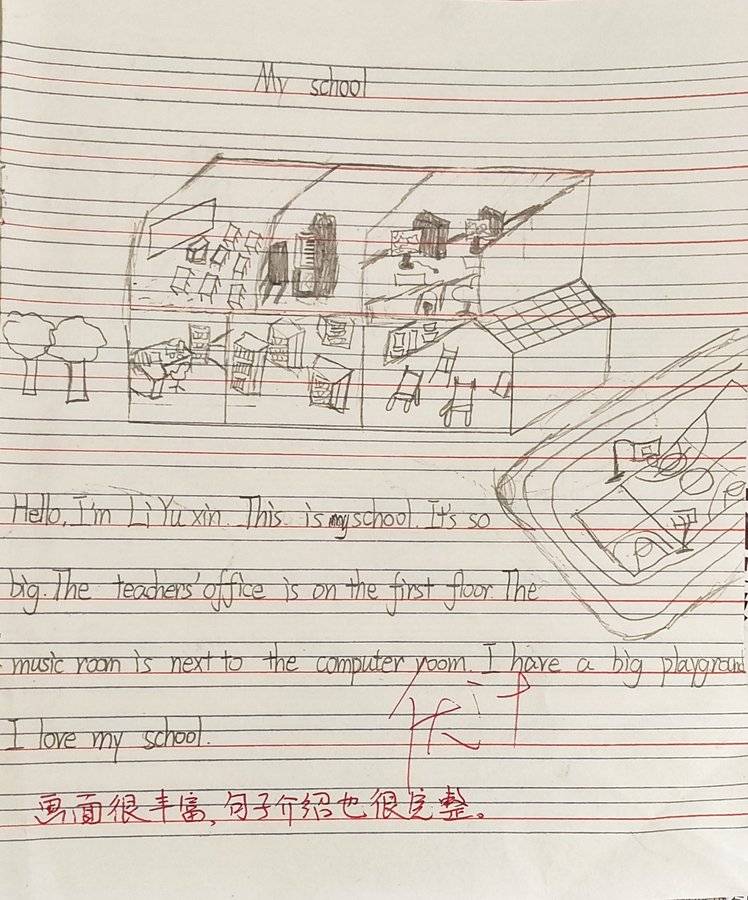 My school
Hello, I'm Li Yu xin. This is my school. It's so
big. The teachers' office is on the first floor. The
music room is next to the computer room. I have a big playground
I love my school.
优
画面很丰富，句子介绍也很完整。